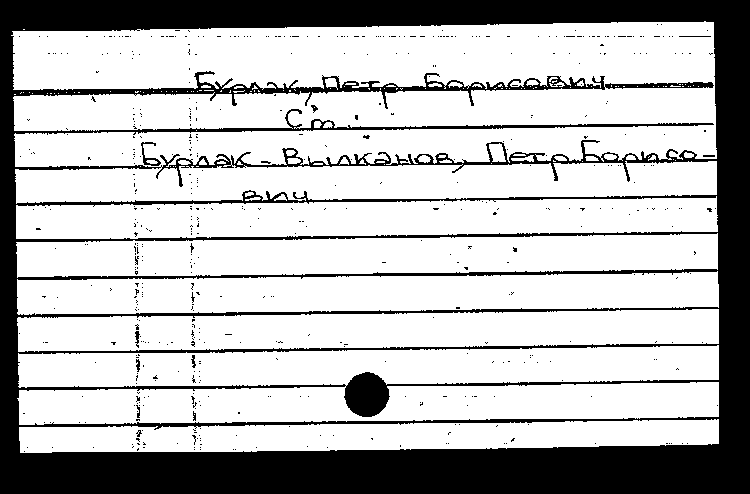 Бурлак, Петр Борисович
Ст.:
Бурлак-Вылканов, Петр Борисо-
вич